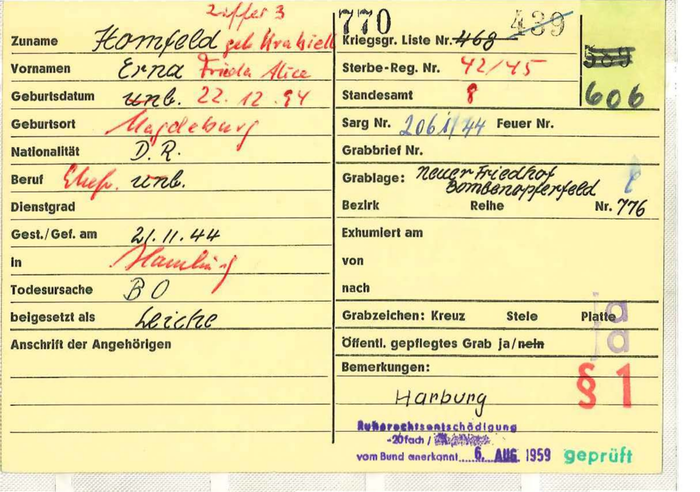 Ziffer 3
770
439
Zuname Homfeld geb Krahiell
Kriegsgr. Liste Nr. 468
589
Vornamen Erna Frieda Alice
Sterbe-Reg. Nr. 42/45
606
Geburtsdatum unb. 22.12.94
Standesamt 8
Geburtsort Magdeburg
Sarg Nr. 2061/44 Feuer Nr.
Nationalität D.R.
Grabbrief Nr.
Beruf Ehefr. unb.
Grablage: Neuer Friedhof
Bombenopferfeld
Dienstgrad
Bezirk Reihe Nr. 776
Gest./Gef. am 21.11.44
Exhumiert am
in Hamburg
von
Todesursache BO
nach
beigesetzt als Leiche
Grabzeichen: Kreuz Stele Platte ja
Anschrift der Angehörigen
Öffentl. gepflegtes Grab ja/nein ja
Bemerkungen:
§ 1
Harburg
Ruherechtsentschädigung
-20fach /
vom Bund anerkannt 6. AUG. 1959 geprüft